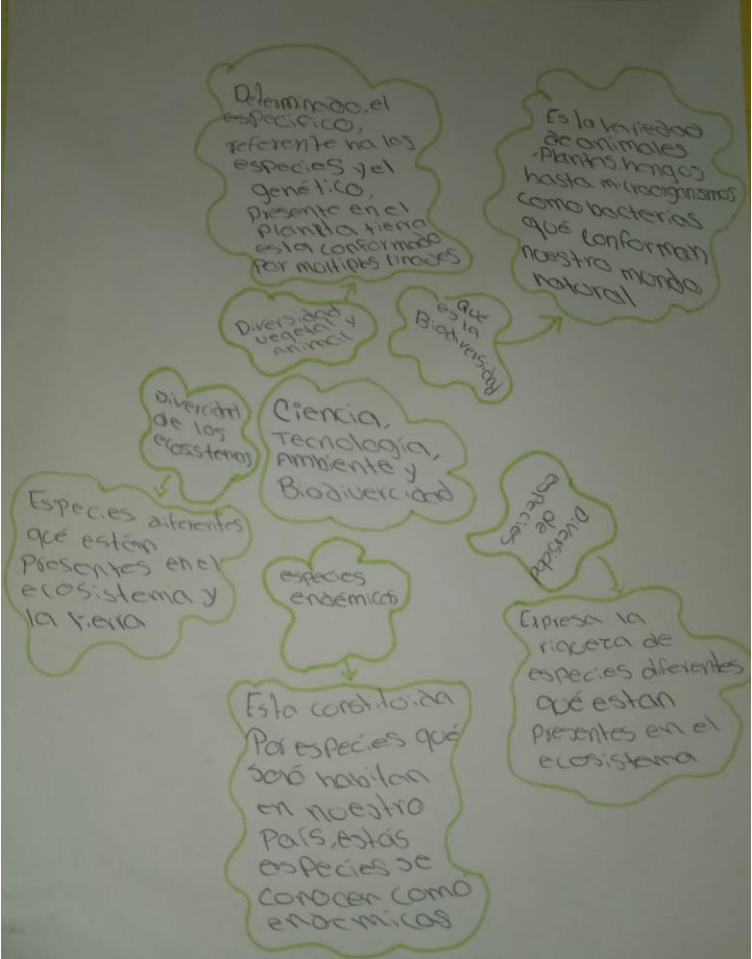 Determinado, el
especifico,
referente ha los
especies y el
genético,
Presente en el
planeta tierra
esta conformado
Por moltiples linages
Es la variedad
de animales
-Plantas, hongos
hasta microorganismos
como bacterias
qué conforman
nuestro mundo
natural
Diversidad
vegetal y
animal
que
es la
Biodiversidad
Divercidad
de los
ecosistemas
Ciencia,
Tecnología,
Ambiente y
Biodivercidad
Especies diferentes
qué están
presentes en el
ecosistema y
la tierra
Diversidad
de
especies
especies
endémicas
Expresa la
riqueza de
especies diferentes
qué estan
presentes en el
ecosistema
Esta constituida
Por especies qué
habitan
en nuestro
País, estás
especies se
conocen como
endemicas